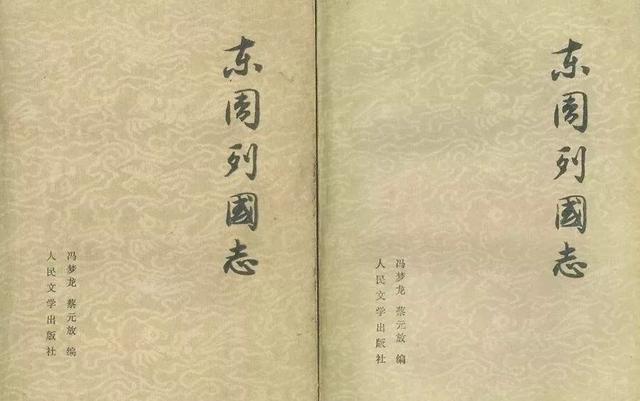 东周列國志
冯梦龙 蔡元放 编
人民文学出版社
东周列國志
冯梦龙 蔡元放 编
人民文学出版社